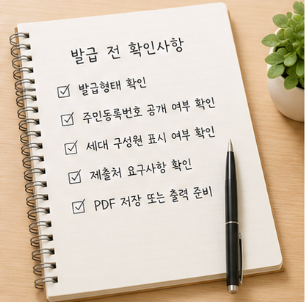 발급 전 확인사항
발급형태 확인
주민등록번호 공개 여부 확인
세대 구성원 표시 여부 확인
제출처 요구사항 확인
PDF 저장 또는 출력 준비